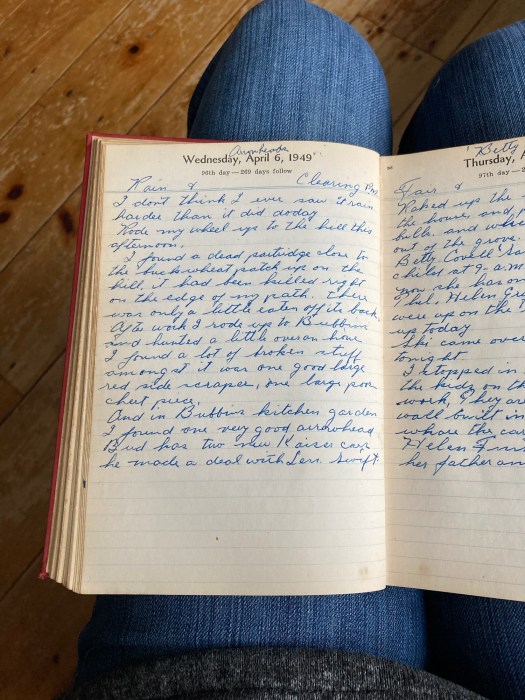 Arrowheads
Wednesday, April 6, 1949
96th day—269 days follow
Rain & Clearing
I don't think I ever saw it rain
harder than it did doday
Rode my wheel up to the hill this
afternoon.
I found a dead partridge close to
the buckwheat patch up on the
hill, it had been killed right
on the edge of my path. there
was only a little eaten off its back
After work I rode up to Bubbins
and hunted a little over an hour
I found a lot of broken stuff
amongst it was one good large
red side scraper, one large poor
chert piece.
And in Bubbins kitchen garden
I found one very good arrowhead
Bud has two new Kaiser cars
he made a deal with Len. Swift
Betty
Thursday, A
97th day—2
Fair &
Raked up the
the house, and
bulbs and
out of the grove.
Betty Covell
child at 9-a.m
you she has
Phil, Helen
were up on the
up today
Ski came over
tonight
I stopped in
the kids on th
work, they are
wall built in
where the car
Helen
her father an